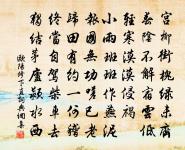 宮柳街槐綠未齊
春陰不解宿雲低
輕寒漠漠侵駝褐
小雨班班作燕泥
報國無功嗟已老
歸田有約一何稽
終當自駕柴車去
獨結茅廬潁水西
歐陽修下直詞典網書